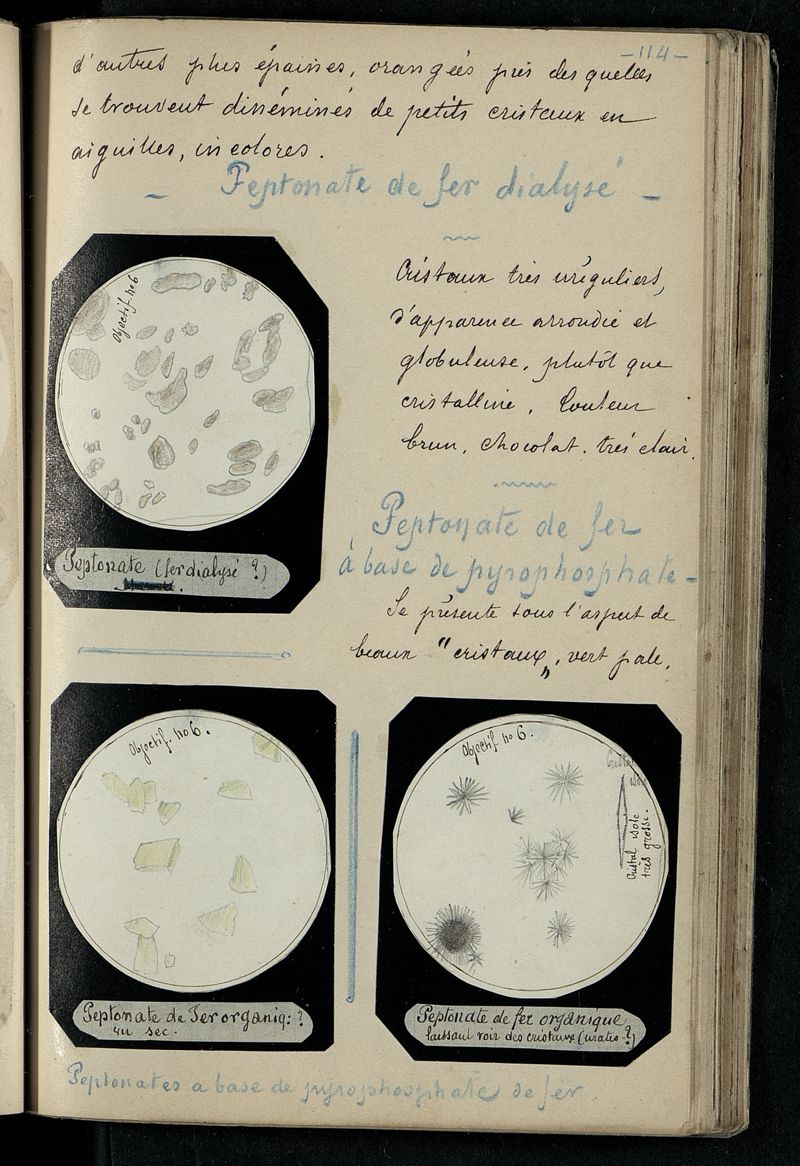 -114-
d'autres plus épaisses, orangées près desquelles
se trouvent disséminés de petits cristaux en
aiguilles, incolores.
- Peptonate de fer dialysé -
Objectif no 6
Cristaux très irréguliers,
d'apparence arrondie et
globuleuse, plutôt que
cristalline. Couleur
brun, chocolat. très clair.
Peptonate (fer dialysé ?)
Peptonate de fer
à base de pyrophosphate -
Se présente sous l'aspect de
beaux "cristaux", vert pale.
Objectif. no 6.
Peptonate de Fer organiq: ?
vu sec.
Objectif no 6.
Cristal isolé
très grossi.
Peptonate de fer organique
laissant voir des cristaux (urates ?)
Peptonates a base de pyrophosphate de fer.